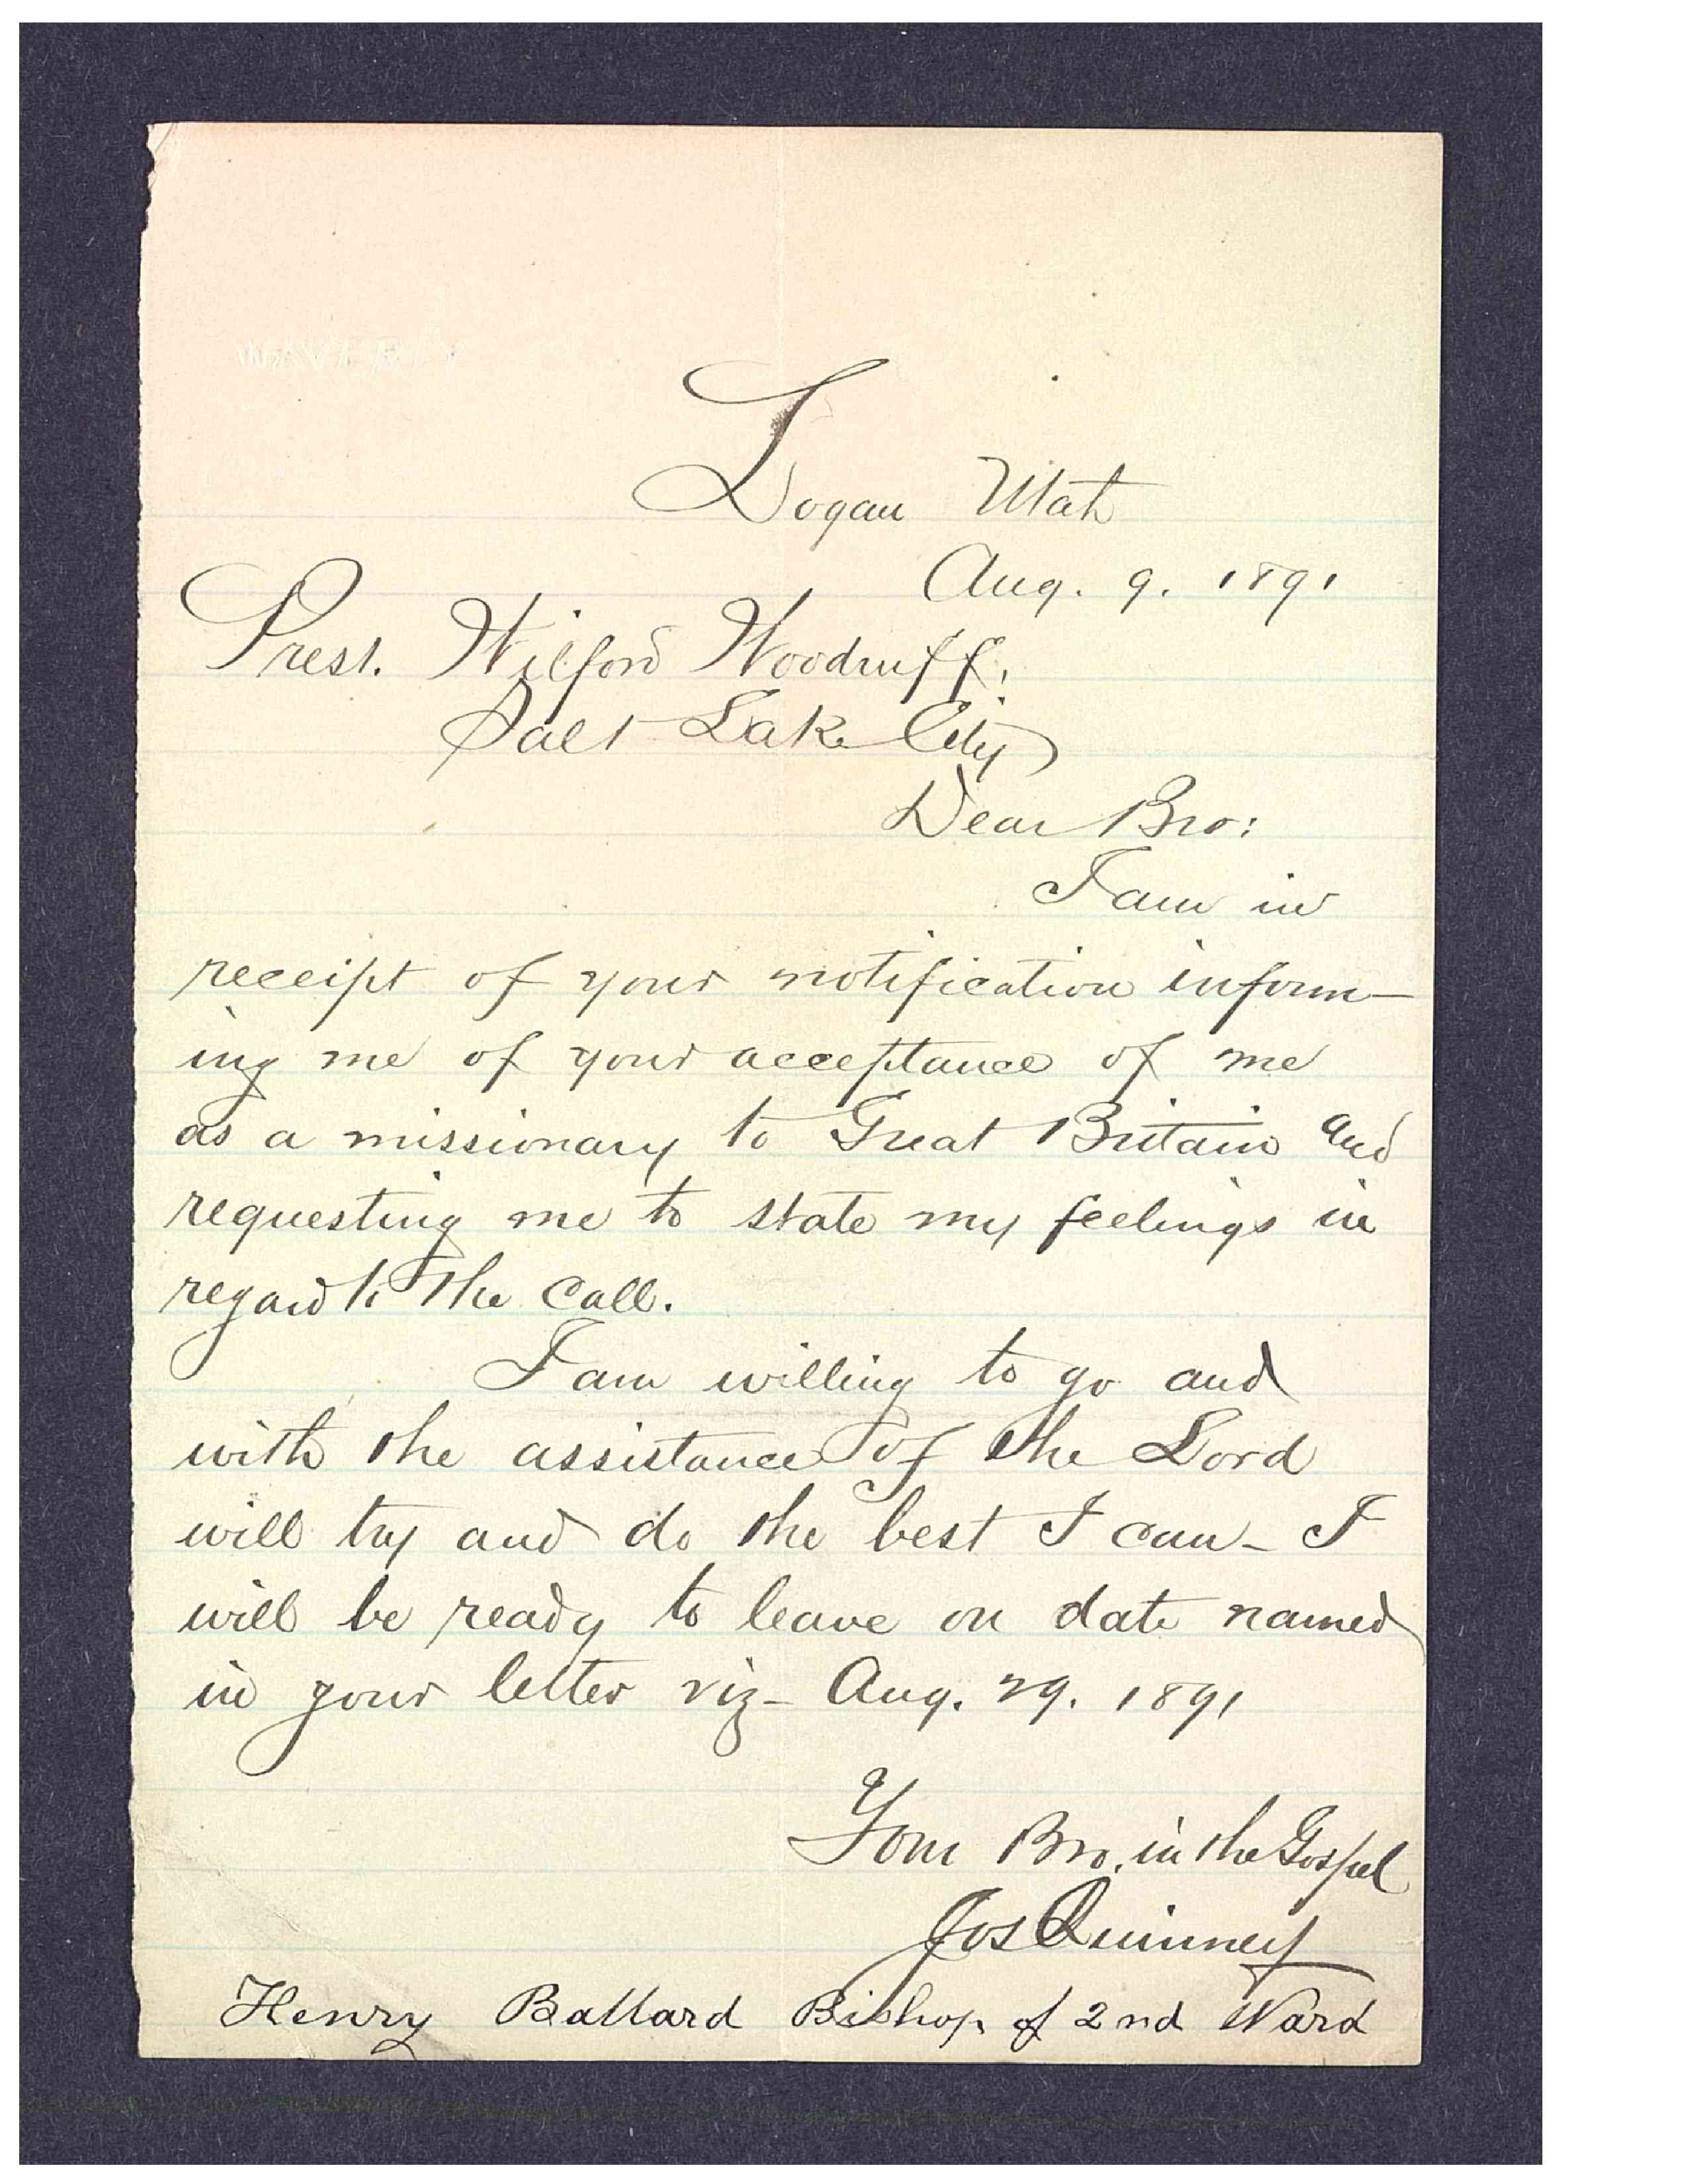 Logan Utah
Aug. 9. 1891
Prest. Wilford Woodruff.
Salt Lake City
Dear Bro:
I am in
receipt of your notification inform-
ing me of your acceptance of me
as a missionary to Great Britain and
requesting me to state my feelings in
regard to the call.
I am willing to go and
with the assistance of the Lord
will try and do the best I can - I
will be ready to leave on date named
in your letter viz - Aug. 29. 1891
Your Bro. in the Gospel
Jos Quinney
Henry Ballard Bishop of 2nd Ward